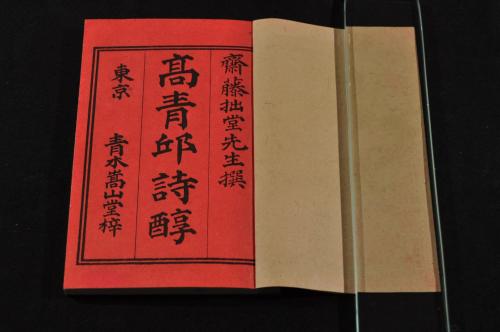 齋藤拙堂先生撰
髙青邱詩醇
東亰
青木嵩山堂梓